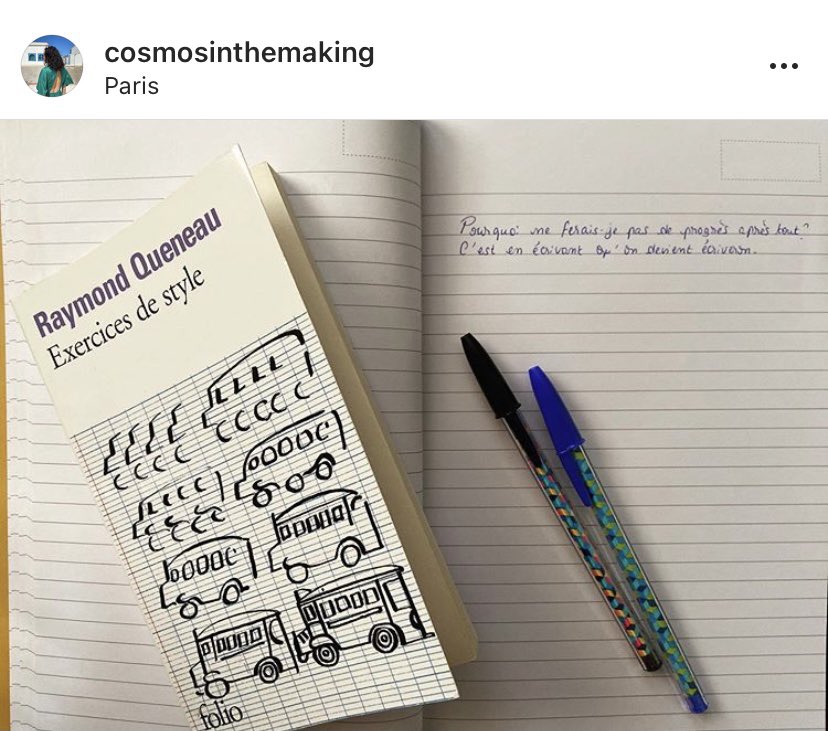 cosmosinthemaking
Paris
Raymond Queneau
Exercices de style
folio
Pourquoi ne ferais-je pas de progrès après tout?
C'est en écrivant qu'on devient écrivain.